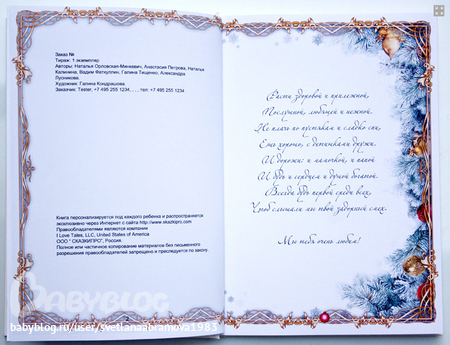 Заказ №
Тираж: 1 экземпляр
Авторы: Наталья Орловская-Минкевич, Анастасия Петрова, Наталья
Калинина, Вадим Фатхуллин, Галина Тищенко, Александра
Пузникова.
Художник: Галина Кондрашова.
Заказчик: Tester, +7 495 255 1234, , , , тел: +7 495 255 1234
Книга персонализируется под каждого ребенка и распространяется
эксклюзивно через Интернет с сайта http://www.skazkipro.com
Правообладателями являются компании
I Love Tales, LLC, United States of America
ООО " СКАЗКИПРО", Россия.
Полное или частичное копирование материалов без письменного
разрешения правообладателей запрещено и преследуется по закону.
2
Расти здоровой и прилежной,
Послушной, любящей и нежной.
Не плачь по пустякам и сладко спи,
Ешь хорошо, с детишками дружи.
И дорожи: и мамочкой, и папой
И будь и сердцем и душой богатой.
Всегда будь первой среди всех,
Чтоб слышали мы твой задорный смех.
Мы тебя очень любим!
BABYBLOG
babyblog.ru/user/svetlanaabramova1983